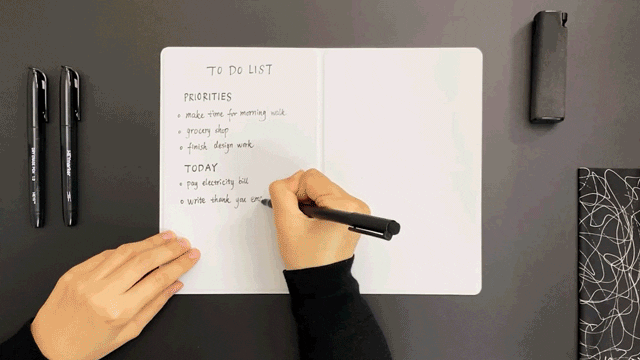 TO DO LIST
PRIORITIES
make time for morning walk
grocery shop
finish design work
TODAY
pay electricity bill
write thank you